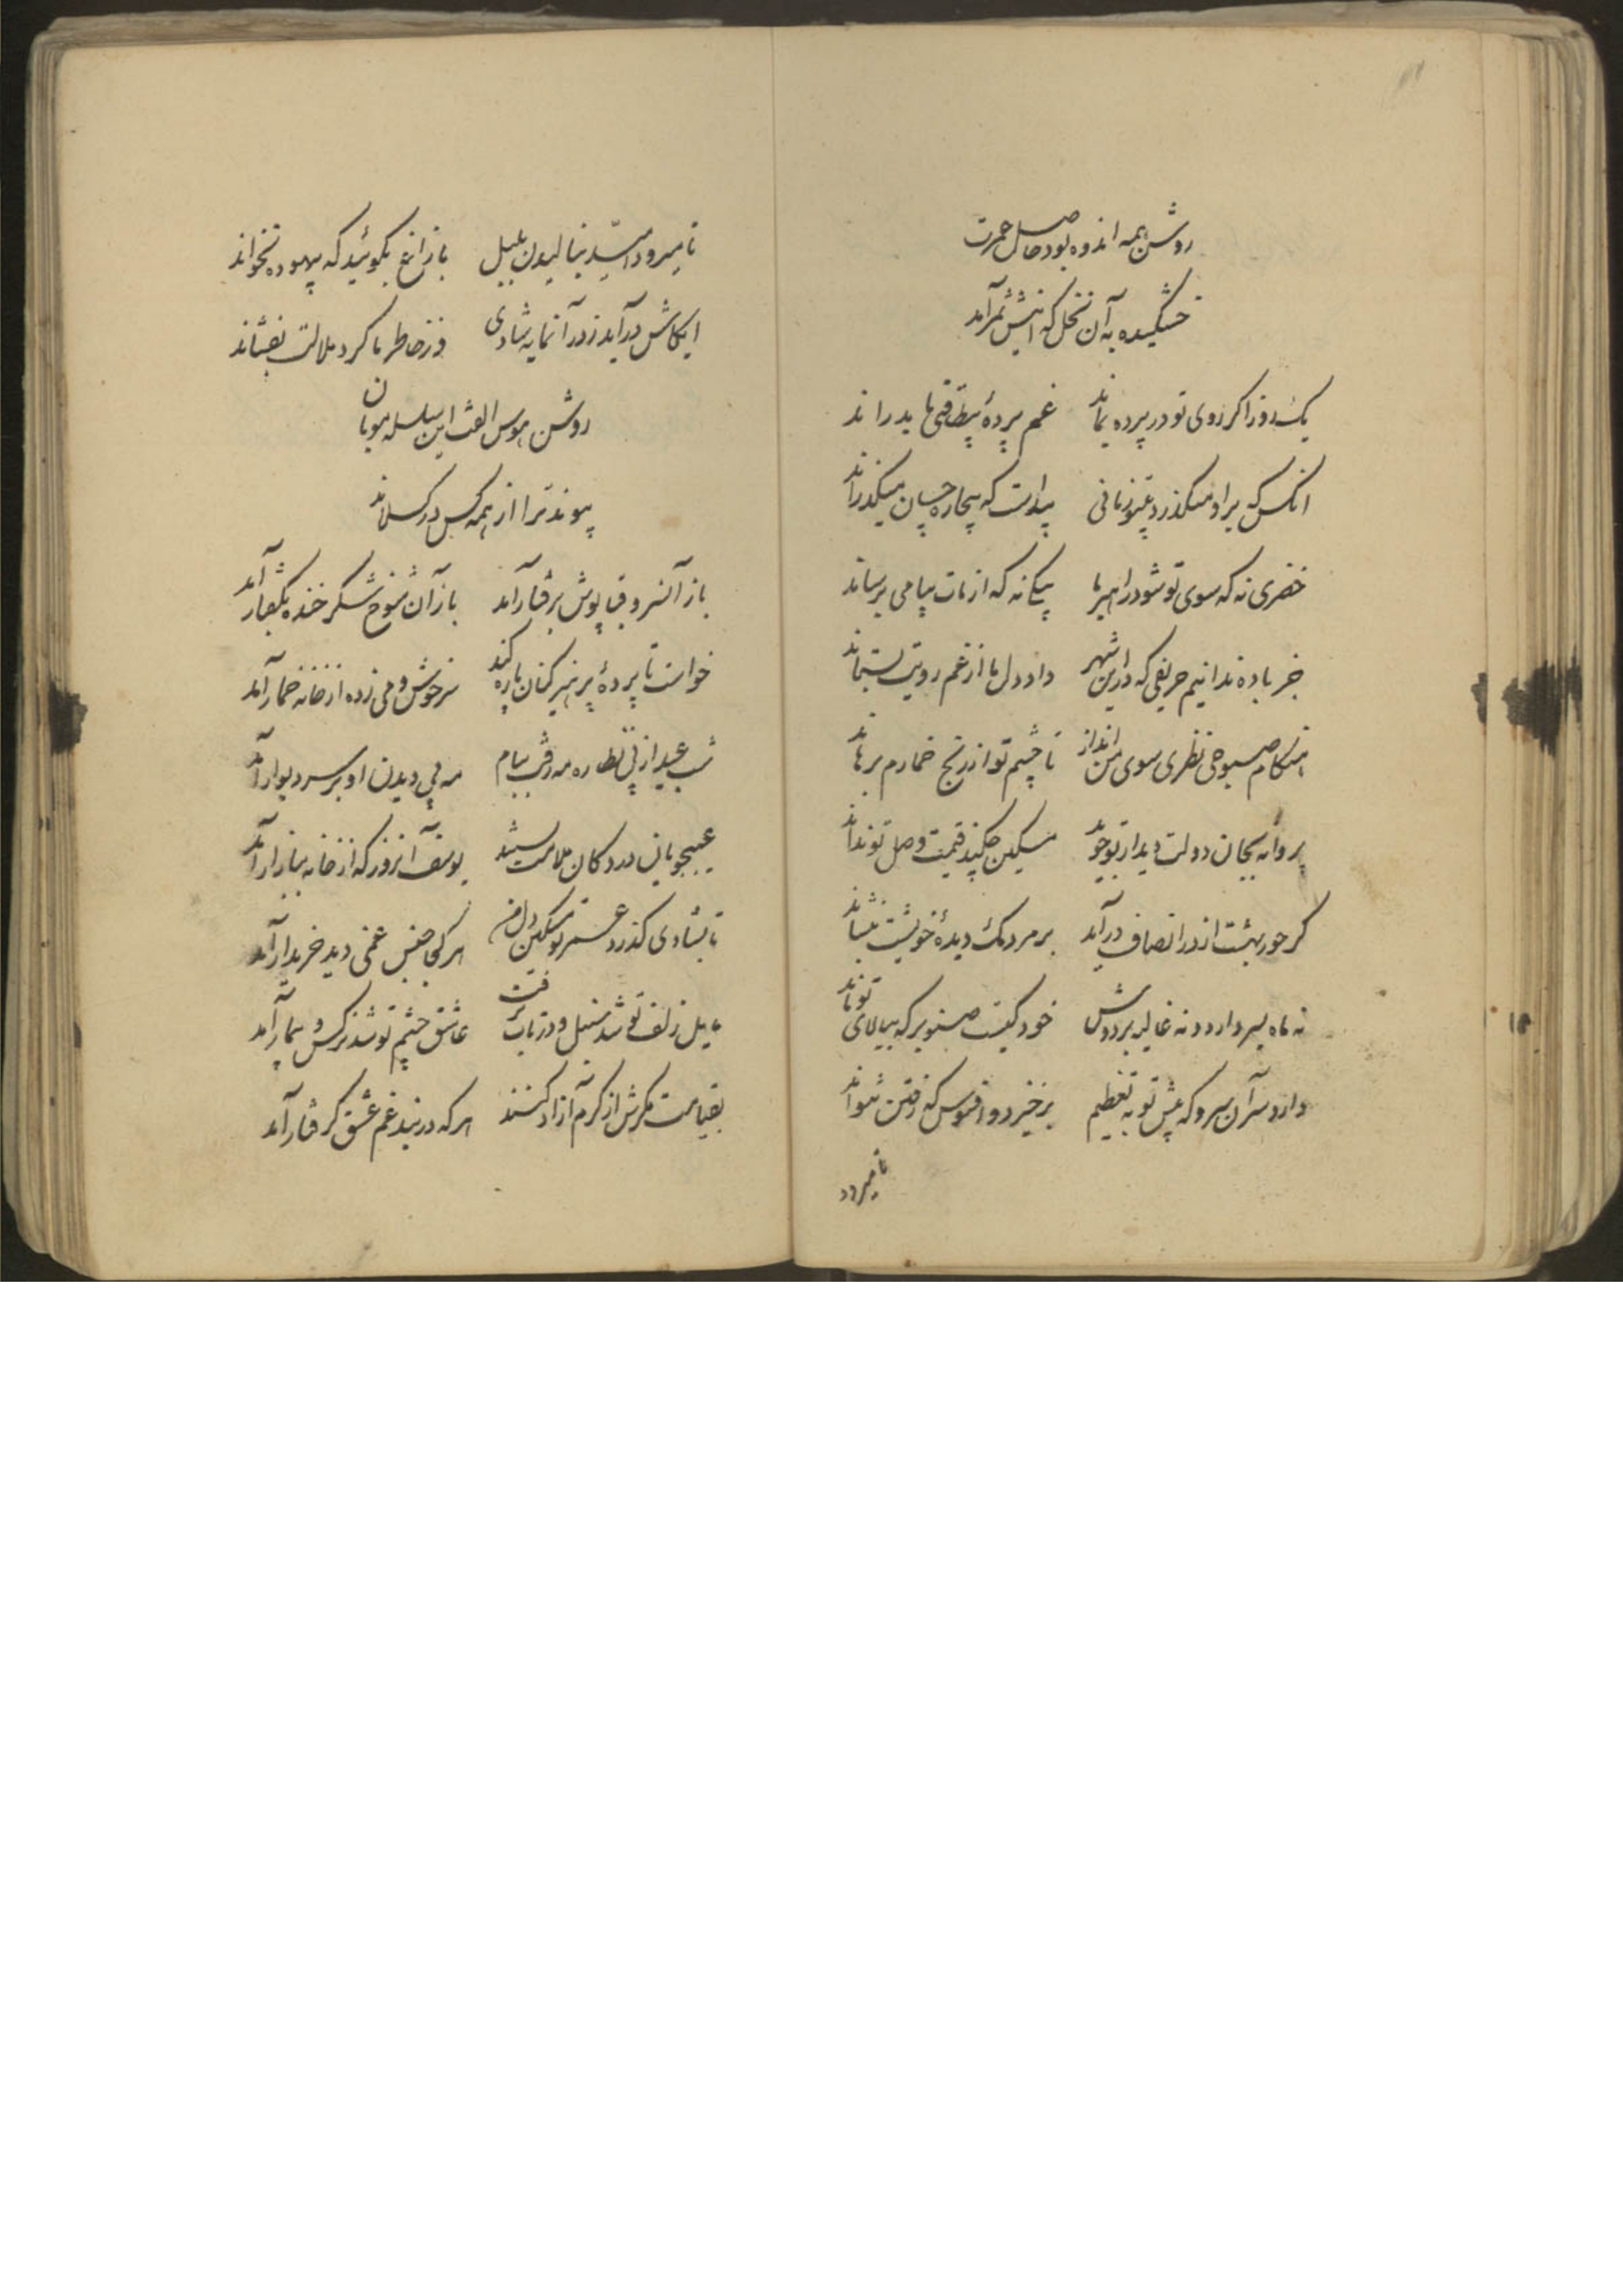 روشن همه اندوه بود حاصل عمرت
خشکیده به آن نخل که اینش ثمر آمد
یکروز اگر روی تو در پرده بماند غم پردهٔ بیطاقتی ما بدراند
انکس که براو میگذرد بیتو زمانی پیداست که بیچاره چسان میگذراند
خضری نه که سوی تو شود راهبر ما پیکی نه که از مات پیامی برساند
جز باده ندانیم حریفی که در این شهر داد دل ما از غم رویت بستاند
هنگام صبوحی نظری سوی من انداز تا چشم تو از رنج خمارم برهاند
پروانه بجان دولت دیدار تو جوید مسکین چکند قیمت وصل تو نداند
گر حور بهشت از در انصاف درآید بر مردمک دیدهٔ خویشت بنشاند
نه ماه بسر دارد و نه غالیه بر دوش خود کیست صنوبر که ببالای تو ماند
دارد سر آن سرو که پیش تو به تعظیم برخیزد و افسوس که رفتن نتواند
تا میرود
تا میرود امید بنالیدن بلبل با زاغ بگوئید که بیهوده نخواند
ایکاش درآید ز در آنمایه شادی وز خاطر ما گرد ملالت بفشاند
روشن هوس الفت این سلسله مویان
پیوند ترا از همه کس درگسلاند
باز آنسرو قباپوش برفتار آمد باز آن شوخ شکر خنده بگفتار آمد
خواست تا پردهٔ پرهیز کنان پاره کند سرخوش و می زده از خانه خمار آمد
شب عید از پی نظاره مه رفت ببام مه پی دیدن او بر سر دیوار آمد
عیبجویان در دکان ملامت بستند یوسف آنروز که از خانه ببازار آمد
تا بشادی گذرد عمر تو مسکین دل من هر کجا جنس غمی دید خریدار آمد
مایل زلف تو شد سنبل و در تاب برفت عاشق چشم تو شد نرگس و بیمار آمد
بقیامت مگرش از کرم آزاد کنند هر که در بند غم عشق گرفتار آمد